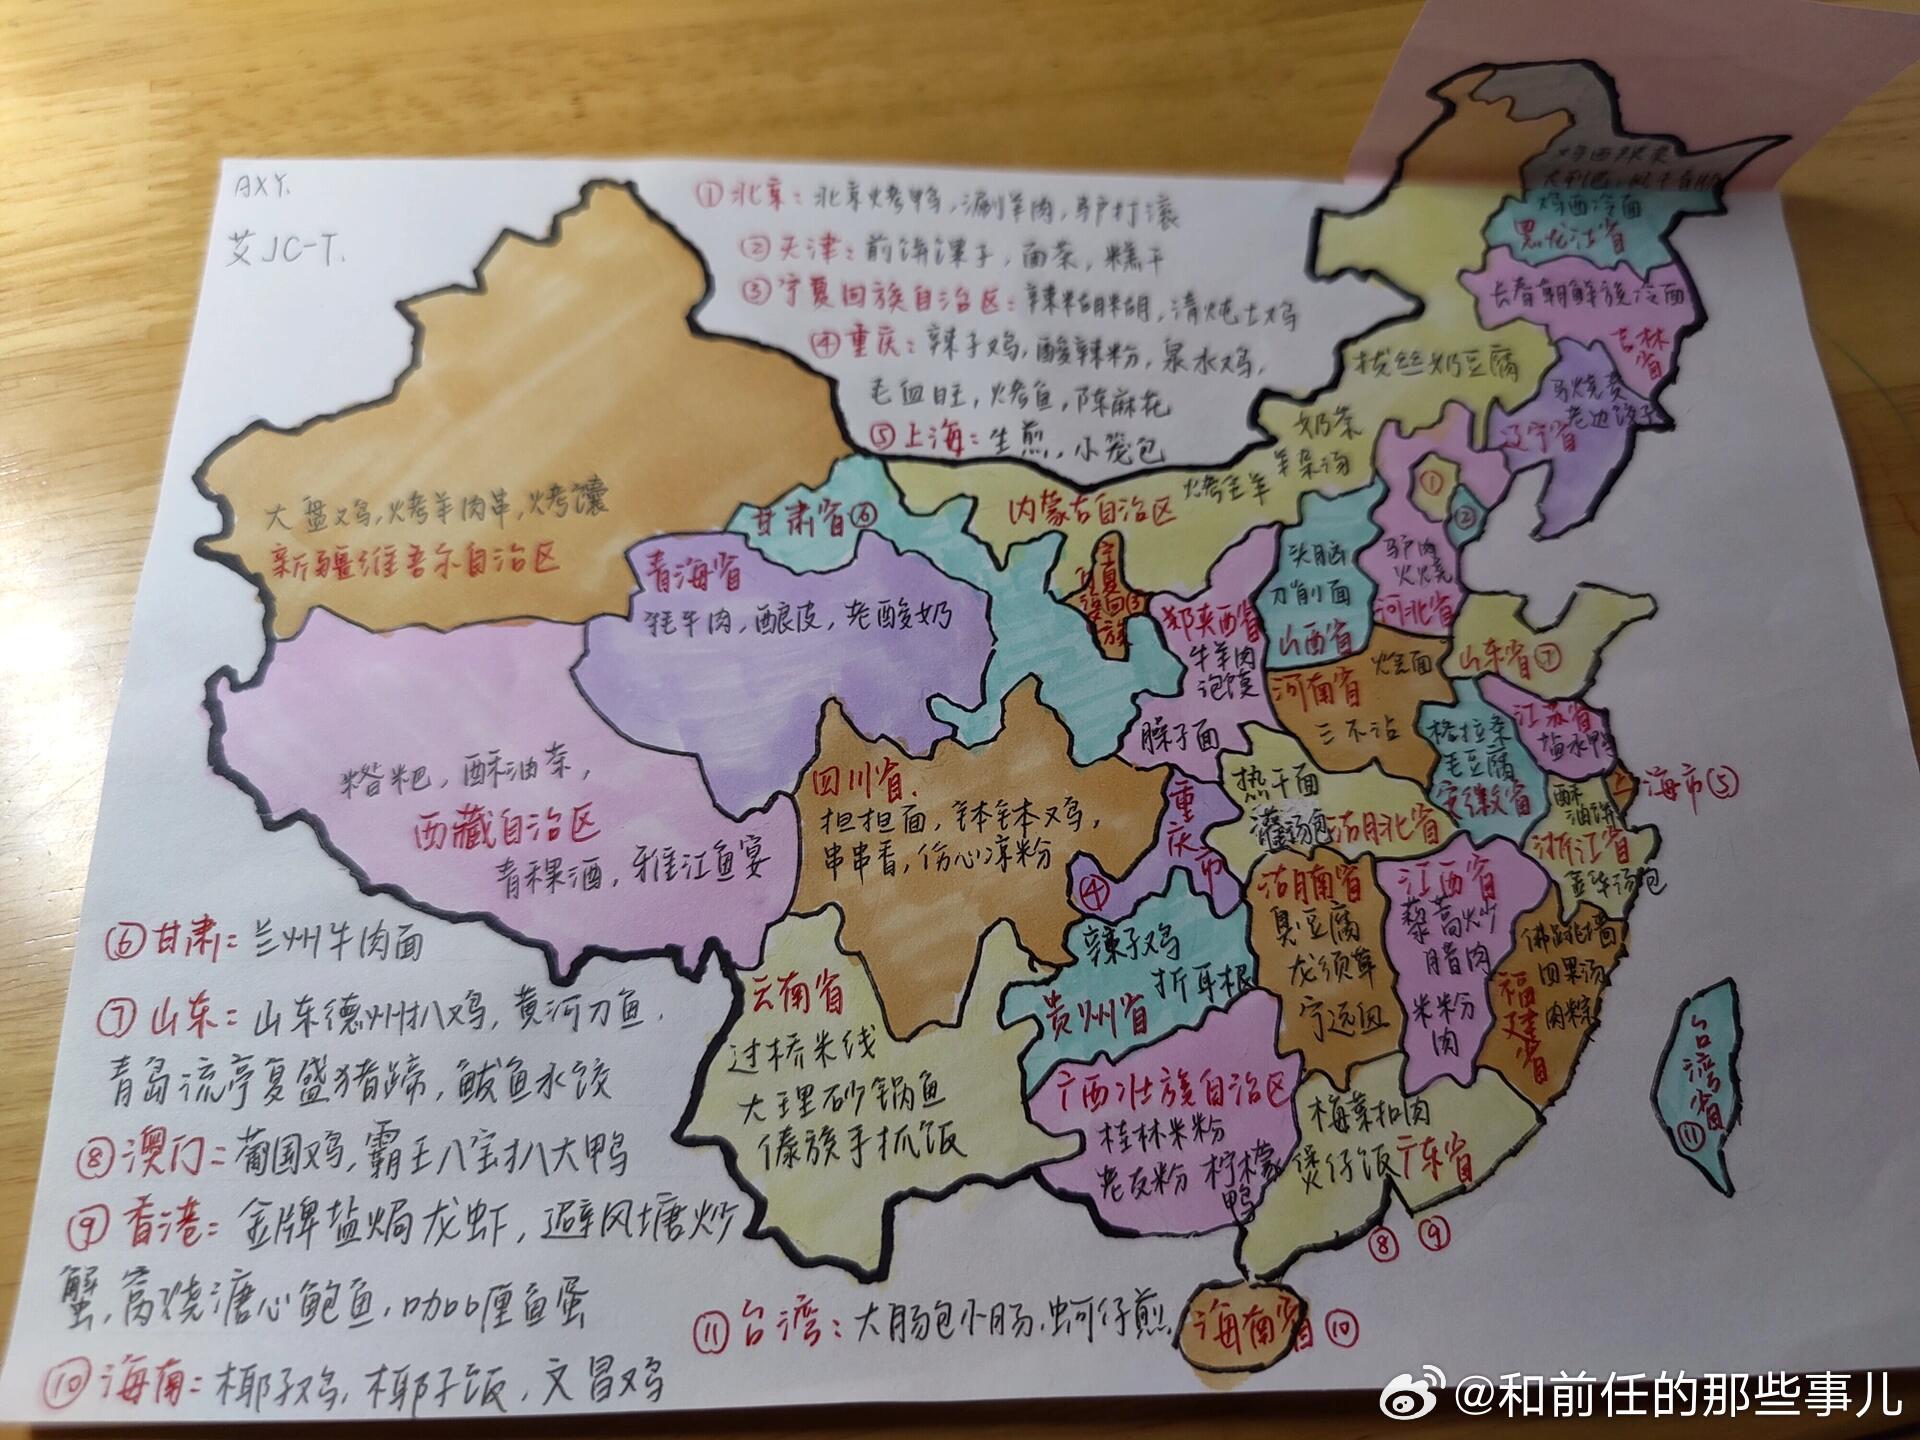 AXY.
艾JC-T.
①北京：北京烤鸭，涮羊肉，驴打滚
②天津：煎饼馃子，面茶，糕干
③宁夏回族自治区：辣糊糊，清炖土鸡
④重庆：辣子鸡，酸辣粉，泉水鸡，
毛血旺，烤鱼，陈麻花
⑤上海：生煎，小笼包
鸡西辣菜
大列巴，风干香肠
鸡西冷面
黑龙江省
长春朝鲜族冷面
吉林省
马烧麦
老边饺子
辽宁省
拔丝奶豆腐
奶茶
羊杂汤
烤全羊
内蒙古自治区
大盘鸡，烤羊肉串，烤馕
新疆维吾尔自治区
甘肃省⑥
青海省
牦牛肉，酿皮，老酸奶
宁夏回族
③
陕西省
牛羊肉
泡馍
臊子面
头脑
刀削面
山西省
①
②
驴肉
火烧
河北省
山东省⑦
烩面
河南省
三不沾
江苏省
盐水鸭
格拉条
毛豆腐
安徽省
上海市⑤
酥油饼
浙江省
金华汤包
糌粑，酥油茶，
西藏自治区
青稞酒，雅江鱼宴
四川省.
担担面，钵钵鸡，
串串香，伤心凉粉
重庆市
④
热干面
灌汤包
湖北省
湖南省
臭豆腐
龙须草
宁远血
江西省
藜蒿炒
腊肉
米粉
肉
佛跳墙
四果汤
肉粽
福建省
辣子鸡
折耳根
贵州省
云南省
过桥米线
大理砂锅鱼
傣族手抓饭
广西壮族自治区
桂林米粉
老友粉 柠檬
鸭
梅菜扣肉
煲仔饭
广东省
⑧ ⑨
台湾省
⑪
海南省⑩
⑥甘肃：兰州牛肉面
⑦山东：山东德州扒鸡，黄河刀鱼.
青岛流亭夏盛猪蹄，鲅鱼水饺
⑧澳门：葡国鸡，霸王八宝扒大鸭
⑨香港：金牌盐焗龙虾，避风塘炒
蟹，窝烧溏心鲍鱼，咖喱鱼蛋
⑩海南：椰子鸡，椰子饭，文昌鸡
⑪台湾：大肠包小肠，蚵仔煎
@和前任的那些事儿